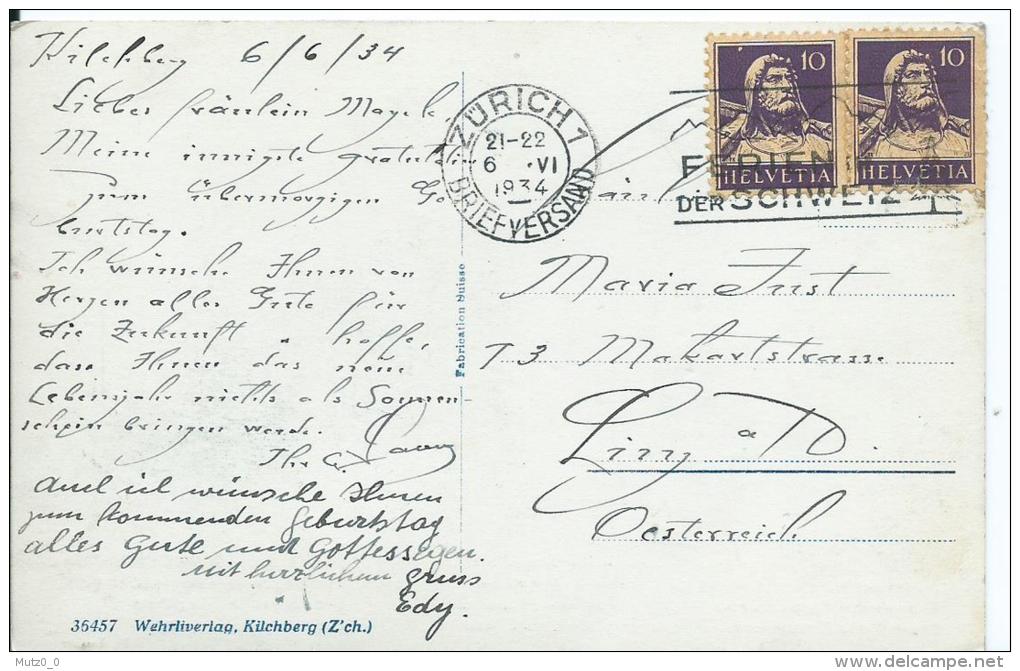 Kilchberg 6/6/34
Liebes Fräulein
Meine innigste Gratulation
zum übermorgigen Ge
burtstag.
Ich wünsche Ihnen von
Herzen alles Gute für
die Zukunft u. hoffe,
dass Ihnen das neue
Lebensjahr nichts als Sonnen-
schein bringen werde.
Ihr G.
Auch ich wünsche Ihnen
zum kommenden Geburtstag
alles Gute und Gottessegen.
mit herzlichem Gruss
Edy.
36457 Wehrliverlag, Kilchberg (Z'ch.)
Fabrication Suisse
ZÜRICH 1
21-22
6 VI
1934
BRIEFVERSAND
FERIEN
DER SCHWEIZ
10
HELVETIA
10
HELVETIA
Fräulein
Maria Just
73 Makartstrasse
Linz a D.
Oesterreich
Mutz0_0
www.delcampe.net